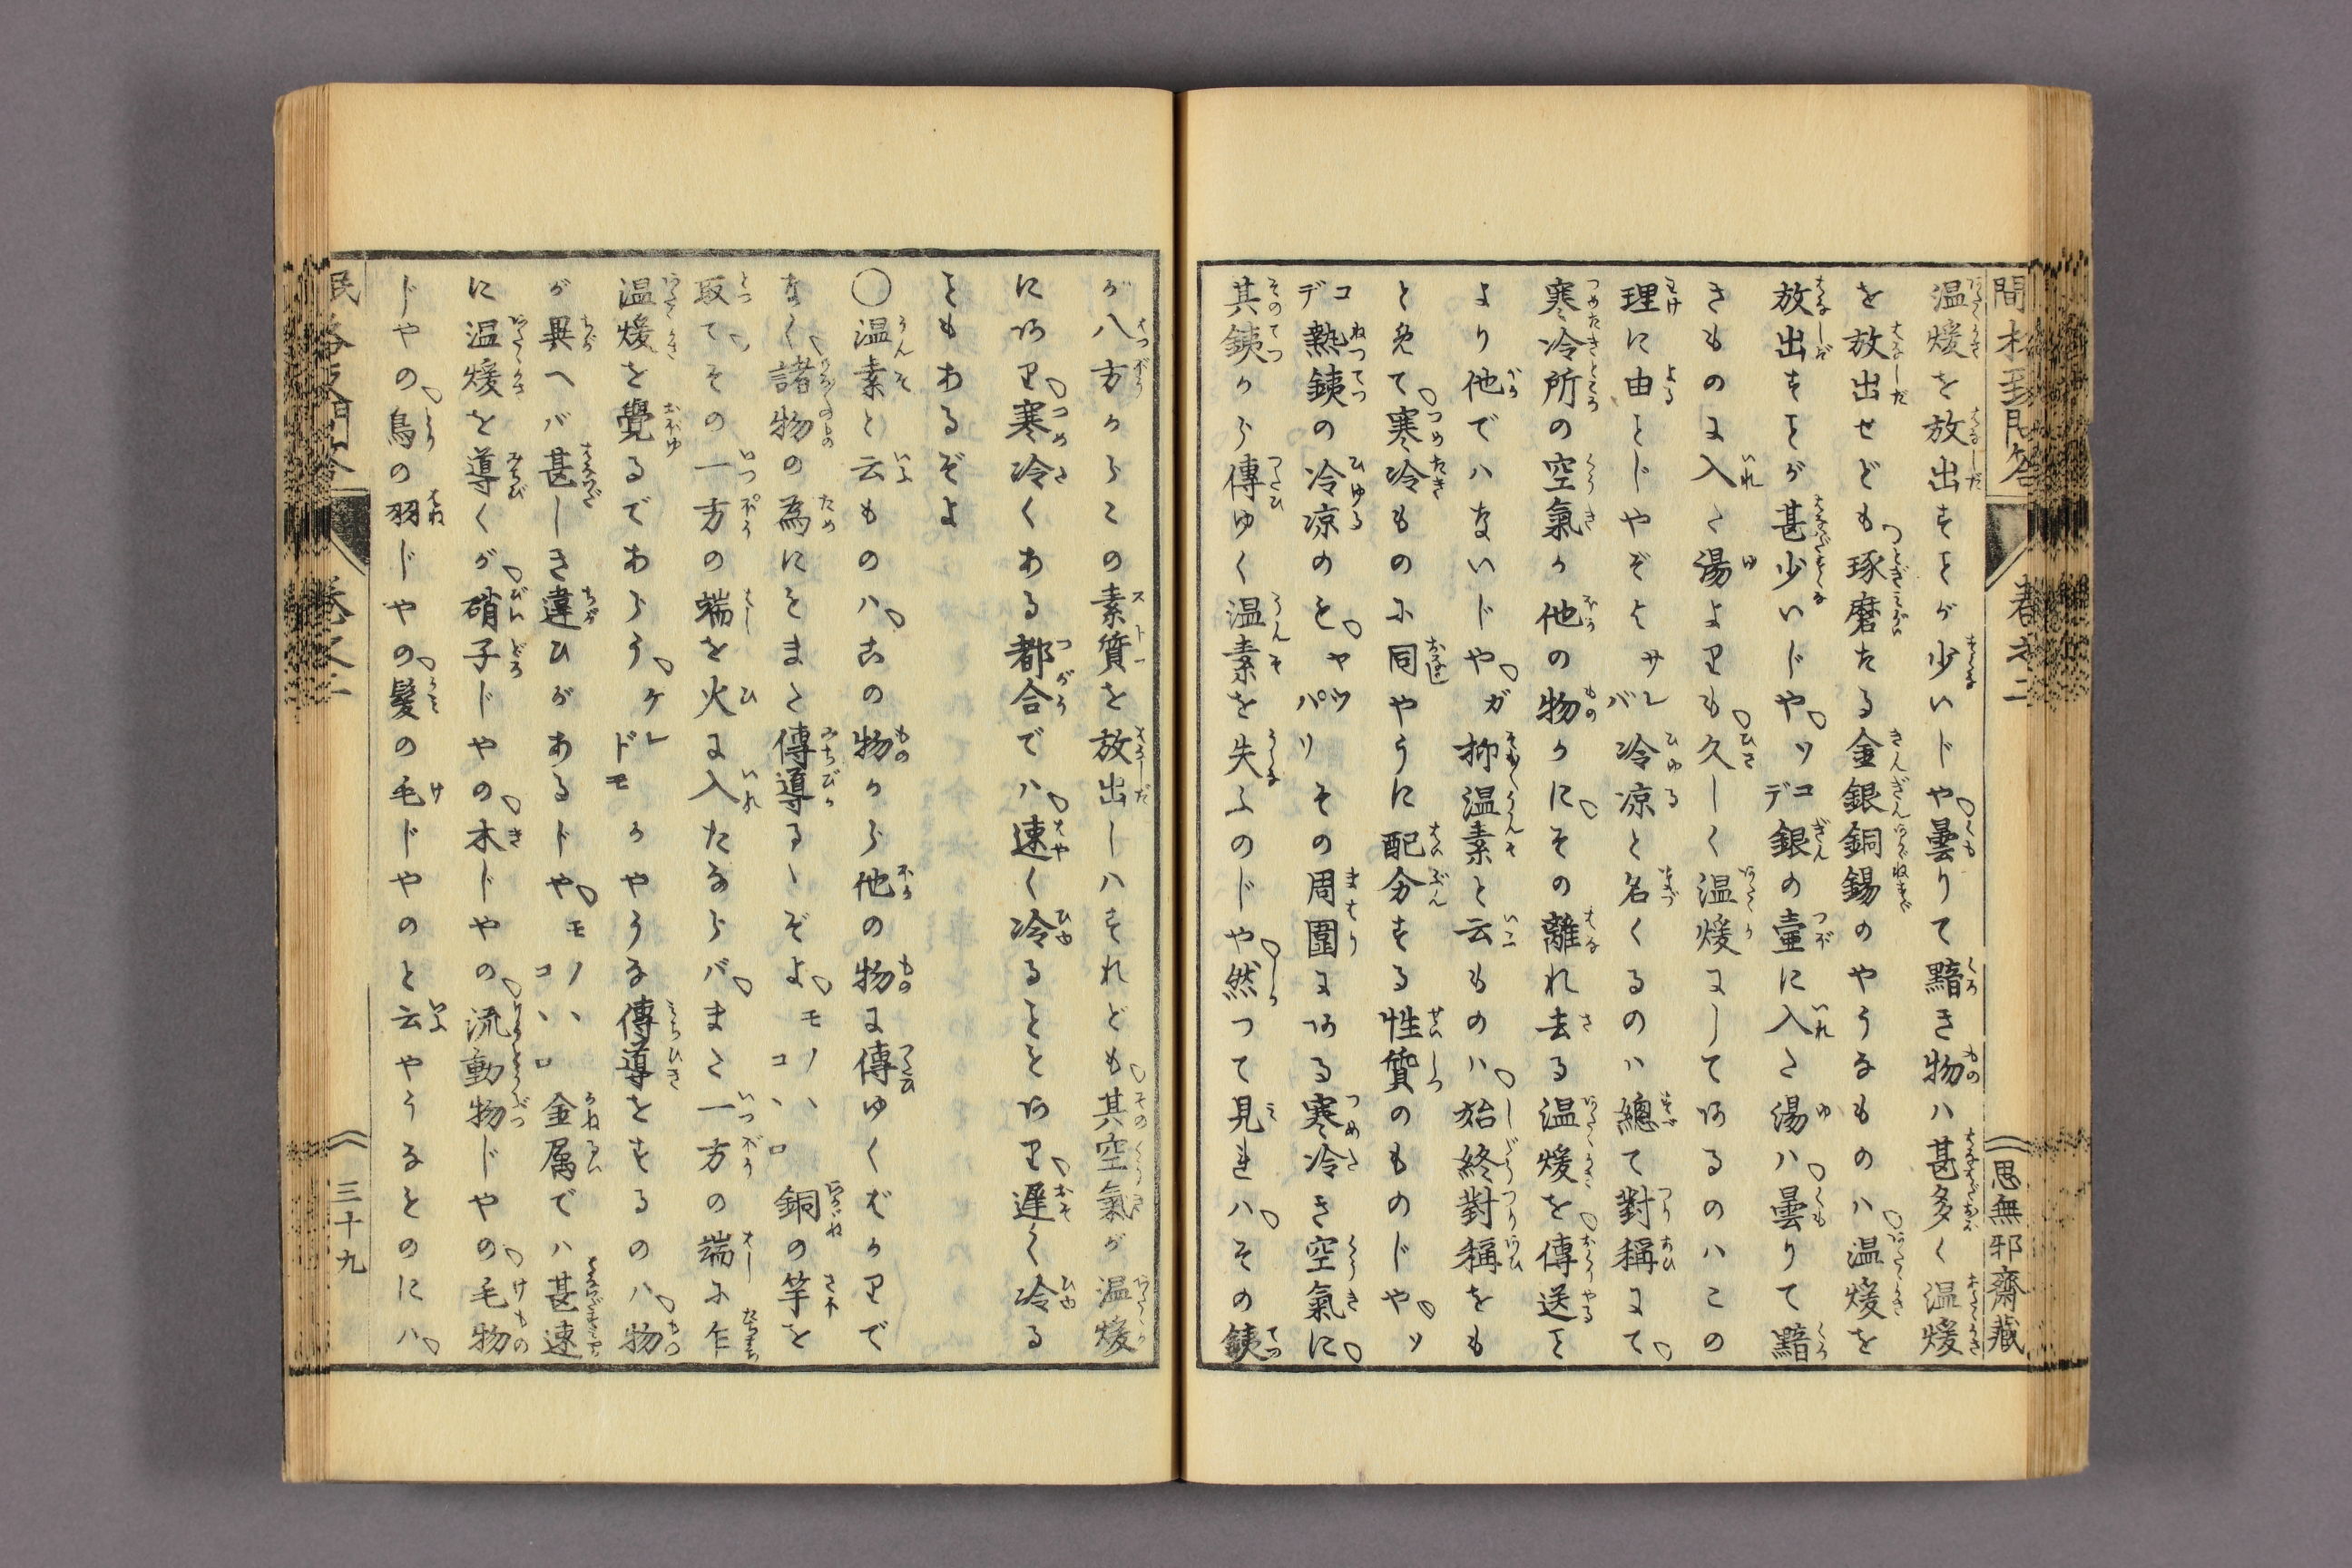 温煖を放出すとが少いじや曇りて黯き物ハ甚多く温煖
を放出せども琢磨たる金銀銅錫のやうなものハ温煖を
放出すとが甚少いじやソコデ銀の壷に入た湯ハ曇りて黯
きものに入た湯よりも久しく温煖にしてゐるのハこの
理に由とじやぞよサレバ冷凉と名くるのハ總て對稱にて
寒冷所の空氣か他の物かにその離れ去る温煖を傳送と
より他でハないじやガ抑温素と云ものハ始終對稱をも
と免て寒冷ものに同やうに配分する性質のものじやソ
コデ熱銕の冷凉のをヤツパリその周圍にある寒冷き空氣に
其銕から傳ゆく温素を失ふのじや然つて見れハその銕
が八方からこの素質を放出しハすれども其空氣が温煖
にあり寒冷くある都合でハ速く冷るとあり遅く冷る
ともあるぞよ
〇温素と云ものハ古の物から他の物に傳ゆくばかりで
なく諸物の為にをまた傳導るゝぞよモノハコヽロ銅の竿を
取てその一方の端を火に入たならバまた一方の端に乍
温煖を覺るであらうケレドモかやうな傳導をするのハ物
が異へバ甚しき違ひがあるじやモノハコヽロ金属でハ甚速
に温煖を導くが硝子じやの木じやの流動物じやの毛物
じやの鳥の羽じやの髪の毛じやのと云やうなとのにハ
三十九
巻之二
思無邪齋藏